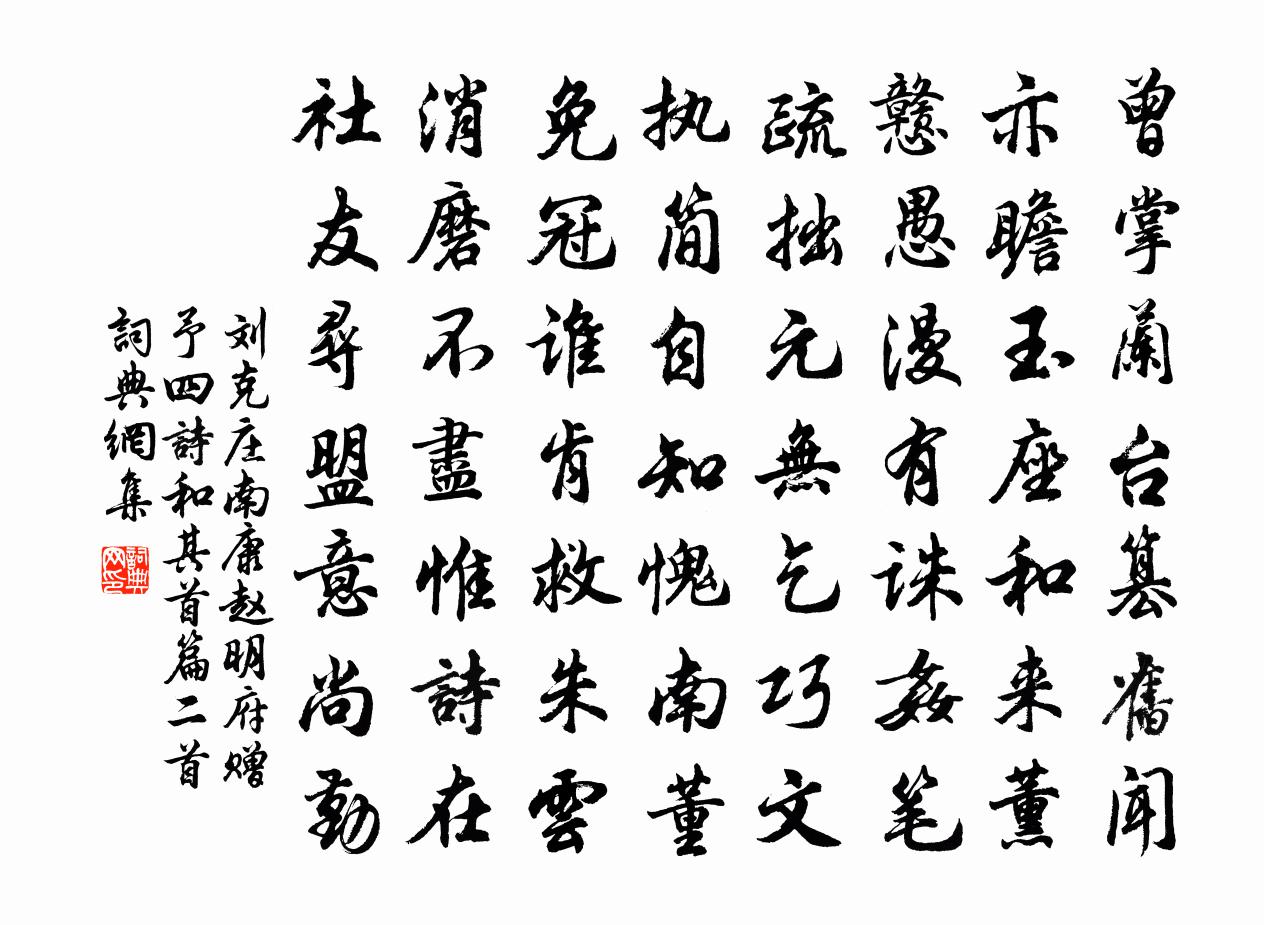 曾掌蘭台篡舊闻
亦瞻玉座和来薰
戆愚漫有诛姦笔
疏拙元無乞巧文
执简自知愧南董
免冠谁肯救朱雲
消磨不盡惟詩在
社友尋盟意尚勤
刘克庄南康赵明府赠
予四詩和其首篇二首
詞典網集
詞典网印